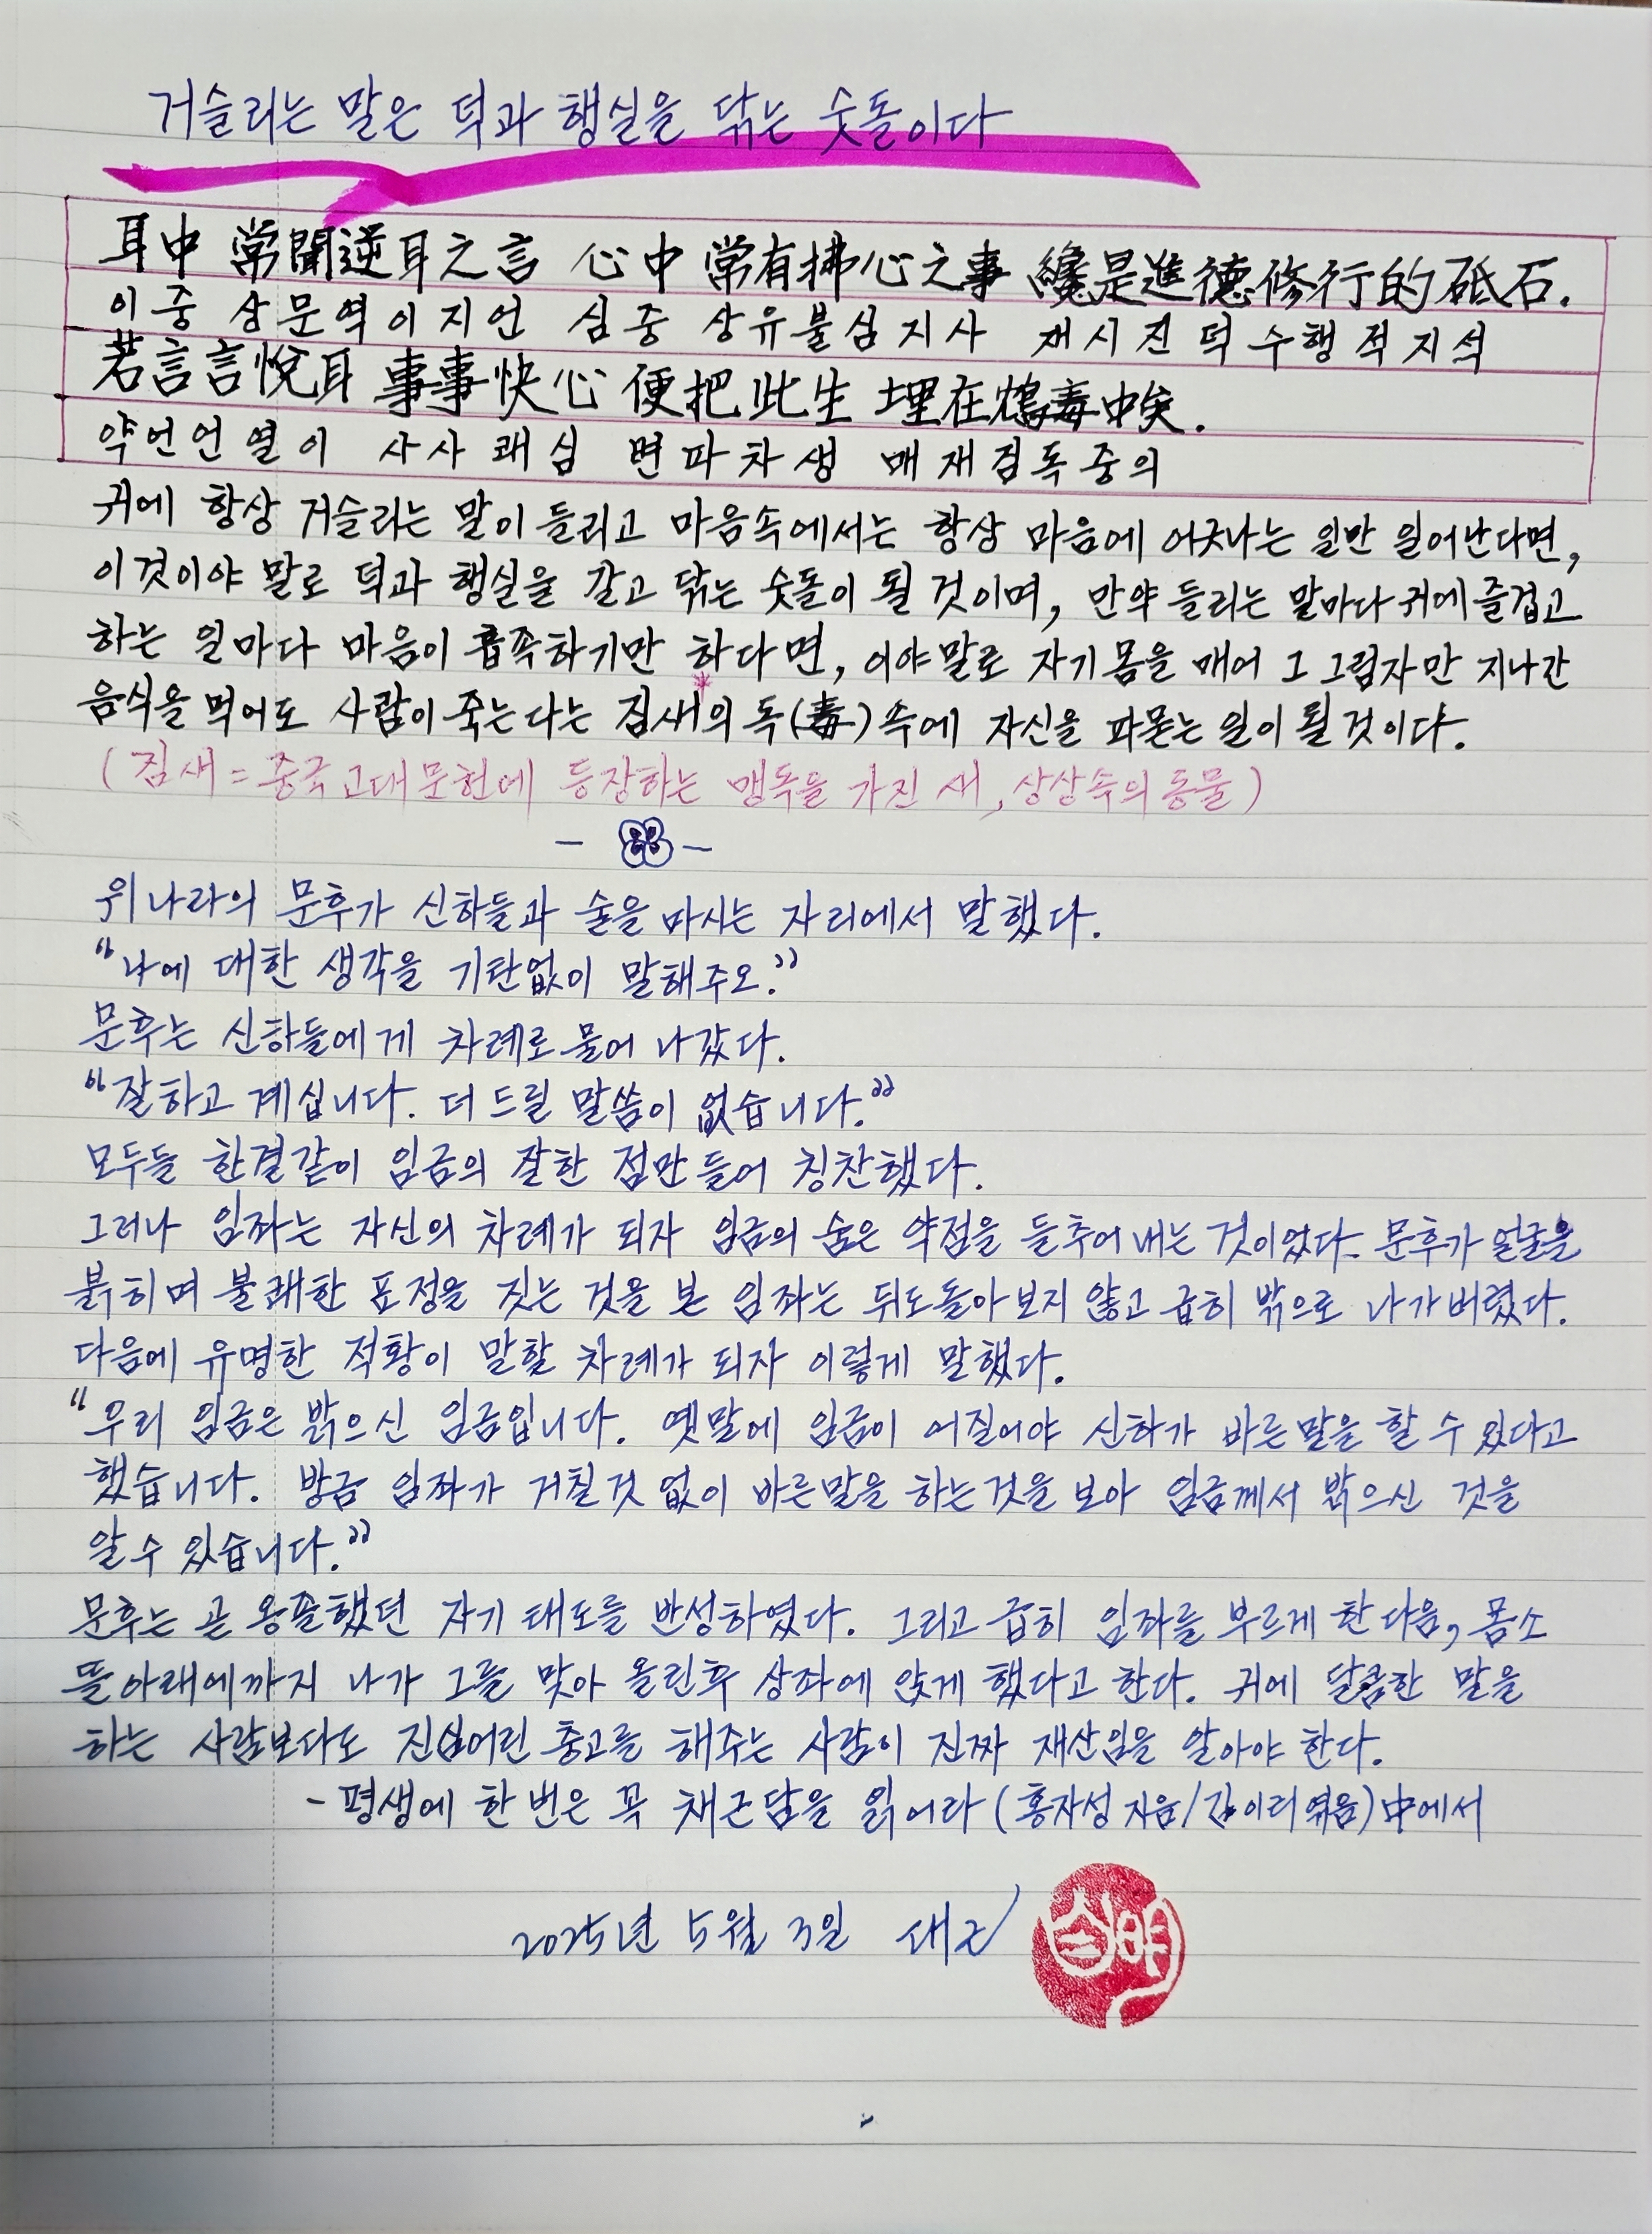 거슬리는 말은 덕과 행실을 닦는 숫돌이다
耳中 常聞逆耳之言 心中 常有拂心之事 纔是進德修行的砥石.
이중 상문역이지언 심중 상유불심지사 재시진덕수행적지석
若言言悅耳 事事快心 便把此生 埋在鴆毒中矣.
약언언열이 사사쾌심 변파차생 매재짐독중의
귀에 항상 거슬리는 말이 들리고 마음속에서는 항상 마음에 어긋나는 일만 일어난다면,
이것이야 말로 덕과 행실을 갈고 닦는 숫돌이 될 것이며, 만약 들리는 말마다 귀에 즐겁고
하는 일마다 마음이 흡족하기만 하다면, 이야말로 자기 몸을 매어 그 그림자만 지나간
음식을 먹어도 사람이 죽는다는 짐새의 독(毒)속에 자신을 파묻는 일이 될것이다.
(짐새=중국고대문헌에 등장하는 맹독을 가진 새, 상상속의동물)
위나라의 문후가 신하들과 술을 마시는 자리에서 말했다.
"나에 대한 생각을 기탄없이 말해주오."
문후는 신하들에게 차례로 물어 나갔다.
"잘하고 계십니다. 더 드릴 말씀이 없습니다."
모두들 한결같이 임금의 잘한 점만 들어 칭찬했다.
그러나 임좌는 자신의 차례가 되자 임금의 숨은 약점을 들추어 내는 것이었다. 문후가 얼굴을
붉히며 불쾌한 표정을 짓는 것을 본 임좌는 뒤도돌아보지 않고 급히 밖으로 나가버렸다.
다음에 유명한 적황이 말할 차례가 되자 이렇게 말했다.
"우리 임금은 밝으신 임금입니다. 옛말에 임금이 어질어야 신하가 바른말을 할 수 있다고
했습니다. 방금 임좌가 거칠것 없이 바른말을 하는것을 보아 임금께서 밝으신 것을
알수 있습니다."
문후는 곧 옹졸했던 자기 태도를 반성하였다. 그리고 급히 임좌를 부르게 한 다음, 몸소
뜰아래에까지 나가 그를 맞아 올린후 상좌에 앉게 했다고 한다. 귀에 달콤한 말을
하는 사람보다도 진심어린 충고를 해주는 사람이 진짜 재산임을 알아야 한다.
- 평생에 한 번은 꼭 채근담을 읽어라 (홍자성 지음/김이리 엮음)中에서
2025년 5월 3일 대근